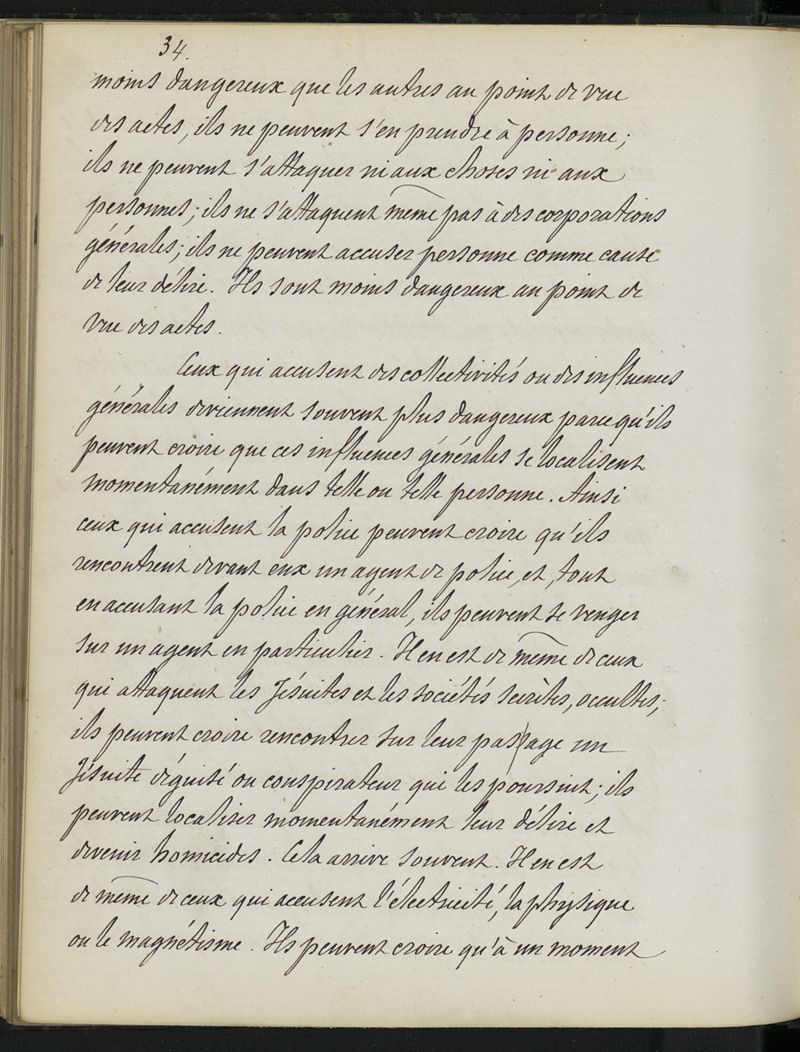 34.
moins dangereux que les autres au point de vue
des actes, ils ne peuvent s'en prendre à personne;
ils ne peuvent s'attaquer ni aux choses ni aux
personnes; ils ne s'attaquent même pas à des corporations
générales; ils ne peuvent accuser personne comme cause
de leur délire. Ils sont moins dangereux au point de
vue des actes.
Ceux qui accusent des collectivités ou des influences
générales deviennent souvent plus dangereux parce qu'ils
peuvent croire que ces influences générales se localisent
momentanément dans telle ou telle personne. Ainsi
ceux qui accusent la police peuvent croire qu'ils
rencontrent devant eux un agent de police, et, tout
en accusant la police en général, ils peuvent se venger
sur un agent en particulier. Il en est de même de ceux
qui attaquent les Jésuites et les sociétés secrètes, occultes;
ils peuvent croire rencontrer sur leur passage un
Jésuite déguisé ou conspirateur qui les poursuit; ils
peuvent localiser momentanément leur délire et
devenir homicides. Cela arrive souvent. Il en est
de même de ceux qui accusent l'électricité, la physique
ou le magnétisme. Ils peuvent croire qu'à un moment